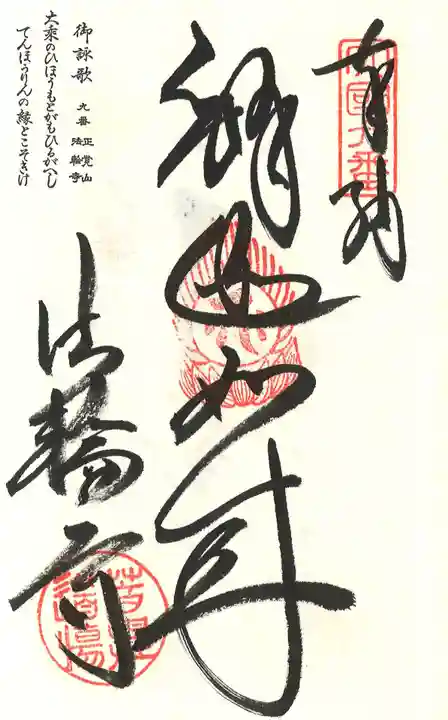 奉納
四國九番
釋迦如来
法輪寺
御詠歌 九番 正覚山 法輪寺
大乗のひほうもとがもひるがへし
てんほうりんの縁とこそきけ